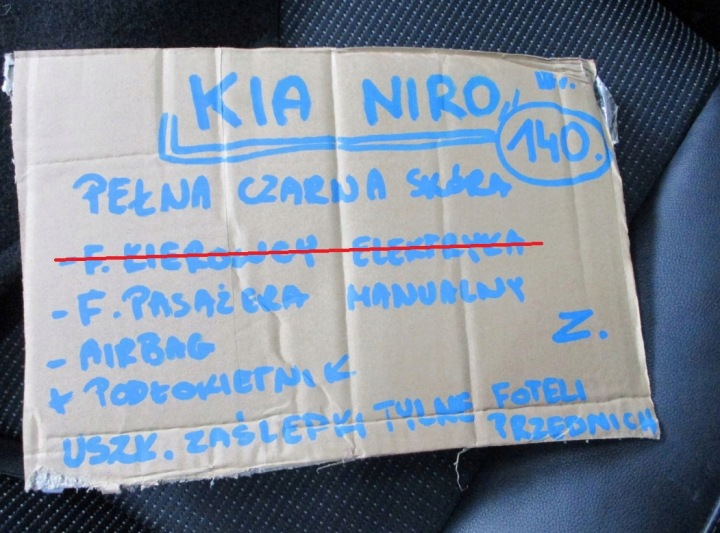 KIA NIRO Nr.
140.
PEŁNA CZARNA SKÓRA
- F. KIEROWCY ELEKTRYKA
- F. PASAŻERA MANUALNY
Z.
- AIRBAG
+ PODŁOKIETNIK
USZK. ZAŚLEPKI TYLNE FOTELI
PRZEDNICH